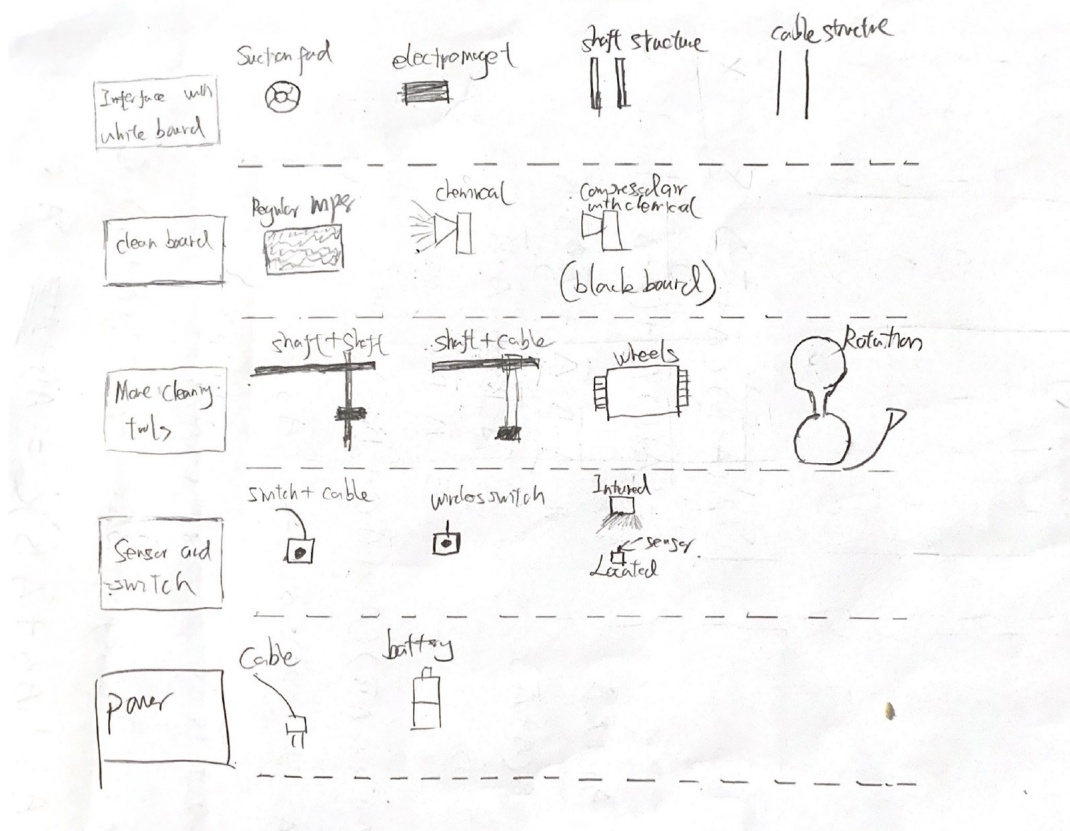 Interface with
white board
Suction pad
electromaget
shaft structure
cable structure
clean board
Regular
chemical
Compressed air
with chemical
(black board)
Move cleaning
tools
shaft + shaft
shaft + cable
wheels
Rotation
Sensor and
switch
switch + cable
wireless switch
Infrared
sensor
Located
power
Cable
battery